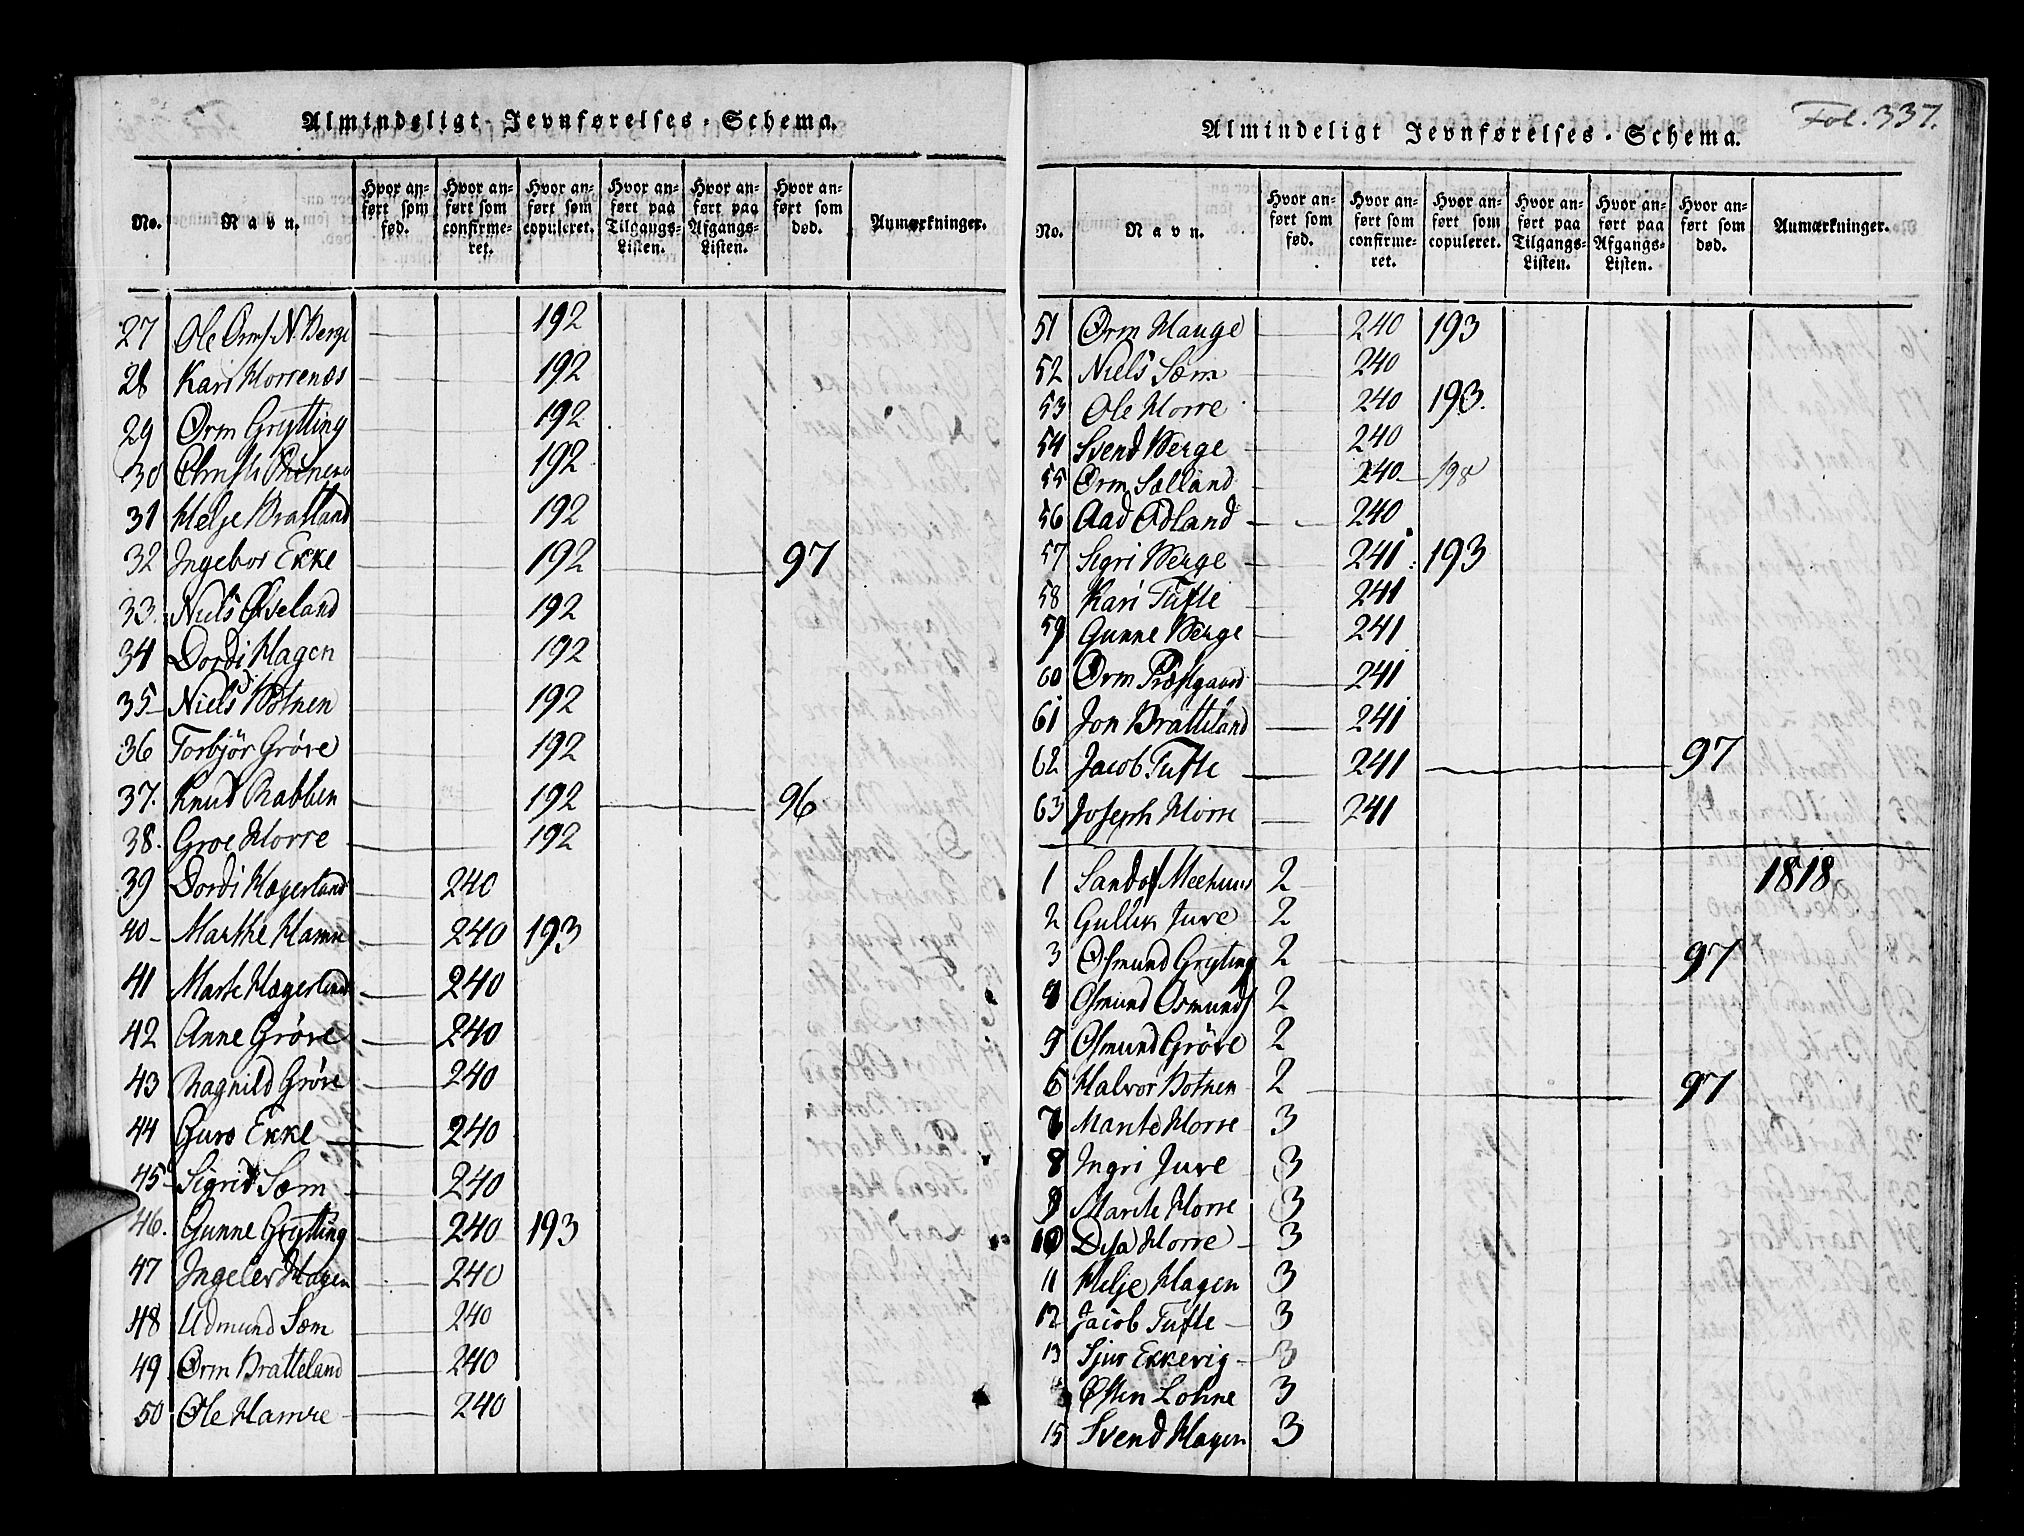 Almindeligt Jevnførelses-Schema.
No. Navn. Hvor anført som fød. Hvor anført som confirmeret. Hvor anført som copuleret. Hvor anført paa Tilgangs-Listen. Hvor anført paa Afgangs-Listen. Hvor anført som død. Anmærkninger.
27 Ole Ormf. N. Berge 192
28 Kari Horrenæs 192
29 Orm Grytting 192
30 192
31 Helje Bratland 192
32 Ingebor Ekke 192 97
33. Niels Øiseland 192
34 Dordi Hagen 192
35 Niels Botnen 192
36 Torbjör Gröve 192
37. Knud Rabben 192 96
38. Groe Horre 192
39 Dordi Hægerland 240
40 Marthe Hamre 240 193
41 Marte Hægerland 240
42 Anne Gröve 240
43 Ragnild Gröve 240
44 Guro Ekke 240
45 Sigrid Sæm 240
46. Gunne Grytting 240 193
47 Ingeler Hagen 240
48 Udmund Sæm 240
49 Orm Bratteland 240
50 Ole Hamre 240
Fol. 337.
Almindeligt Jevnførelses-Schema.
No. Navn. Hvor anført som fød. Hvor anført som confirmeret. Hvor anført som copuleret. Hvor anført paa Tilgangs-Listen. Hvor anført paa Afgangs-Listen. Hvor anført som død. Anmærkninger.
51 Orm Hauge 240 193
52 Niels Sæm 240
53 Ole Horre 240 193.
54 Svend Berge 240
55 Orm Sælland 240 198
56 Aad Odland 240
57 Sigri Berge 241 193
58 Kari Tufte 241
59 Gunne Berge 241
60 Orm Præstgaard 241
61 Jon Bratteland 241
62 Jacob Tufte 241 97
63 Joseph Horre 241
1 Sandof 2 1818
2 Gullik Jure 2
3 Osmund Grytting 2 97
4 Osmund Osmundf 2
5 Osmund Gröve 2
6 Halvor Botnen 2 97
7 Marite Horre 3
8 Ingri Jure 3
9 Marite Horre 3
10 Disa Horre 3
11 Helje Hagen 3
12 Jacob Tufte 3
13 Sjur Ekkevig 3
Østen Lohne 3
15 Svend Hagen 3